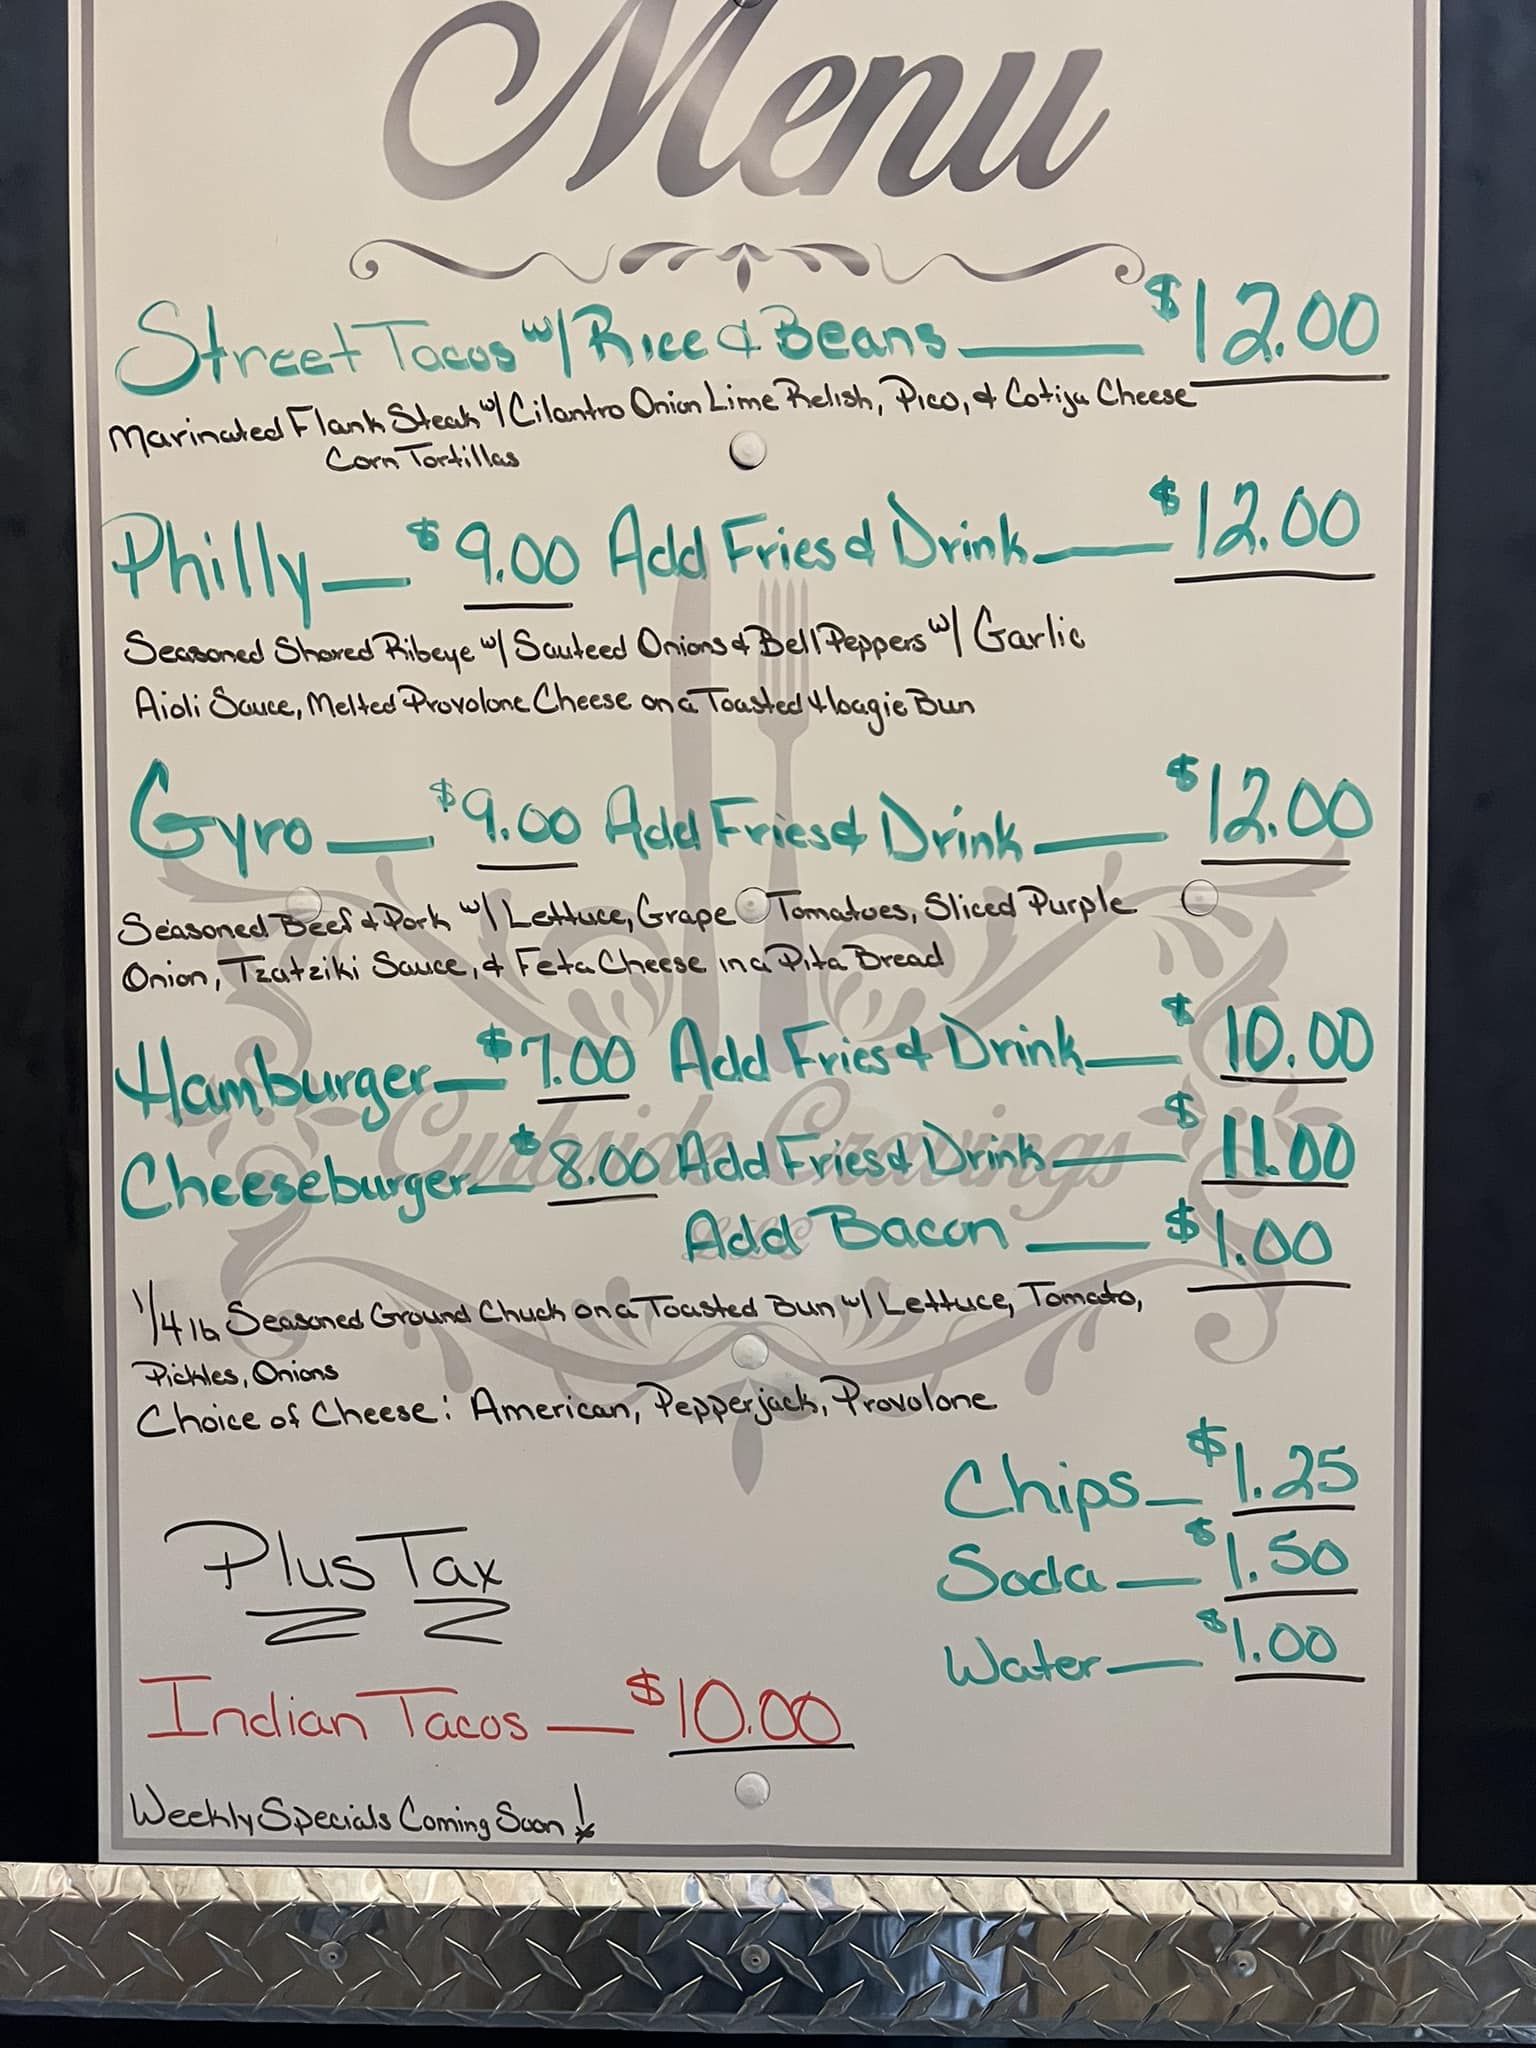 Menu
Street Tacos w/ Rice & Beans — $12.00
Marinated Flank Steak w/ Cilantro Onion Lime Relish, Pico, & Cotija Cheese
Corn Tortillas
Philly — $9.00 Add Fries & Drink — $12.00
Seasoned Shaved Ribeye w/ Sauteed Onions & Bell Peppers w/ Garlic
Aioli Sauce, Melted Provolone Cheese on a Toasted Hoagie Bun
Gyro — $9.00 Add Fries & Drink — $12.00
Seasoned Beef & Pork w/ Lettuce, Grape Tomatoes, Sliced Purple
Onion, Tzatziki Sauce, & Feta Cheese in a Pita Bread
Hamburger — $7.00 Add Fries & Drink — $10.00
Curbside Cravings
Cheeseburger — $8.00 Add Fries & Drink — $11.00
LLC
Add Bacon — $1.00
1/4 lb Seasoned Ground Chuck on a Toasted Bun w/ Lettuce, Tomato,
Pickles, Onions
Choice of Cheese: American, Pepperjack, Provolone
Chips — $1.25
Soda — $1.50
Water — $1.00
Plus Tax
Indian Tacos — $10.00
Weekly Specials Coming Soon!